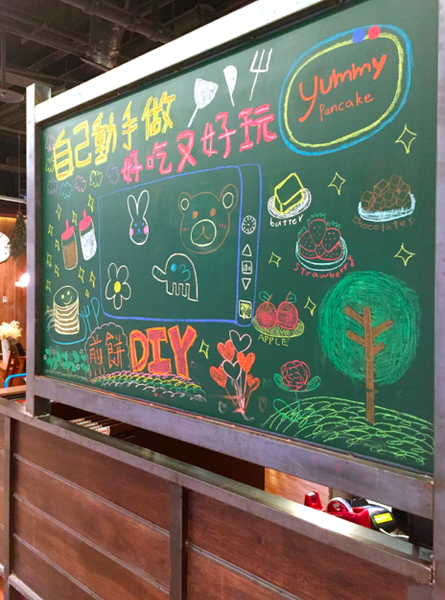 自己動手做
好吃又好玩
Yummy
Pancake
butter
chocolates
strawberry
APPLE
煎餅
DIY